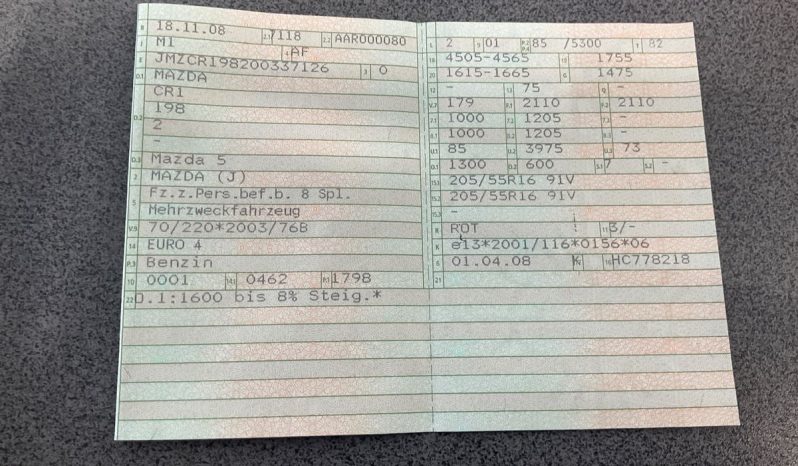 B 18.11.08 2.1 7118 2.2 AAR000080
J M1 4 AF
E JMZCR198200337126 3 0
D.1 MAZDA
CR1
D.2 198
2
-
D.3 Mazda 5
2 MAZDA (J)
5 Fz.z.Pers.bef.b. 8 Spl.
Mehrzweckfahrzeug
V.9 70/220*2003/76B
14 EURO 4
P.3 Benzin
10 0001 14.1 0462 P.1 1798
22 O.1:1600 bis 8% Steig.*
L 2 9 01 P.2 P.4 85 /5300 T 182
18 4505-4565 19 1755
20 1615-1665 G 1475
12 - 13 75 Q -
V.7 179 F.1 2110 F.2 2110
7.1 1000 7.2 1205 7.3 -
8.1 1000 8.2 1205 8.3 -
U.1 85 U.2 3975 U.3 73
O.1 1300 O.2 600 S.1 7 S.2 -
15.1 205/55R16 91V
15.2 205/55R16 91V
15.3 -
R ROT 11 3/-
K e13*2001/116*0156*06
6 01.04.08 17 K 16 HC778218
21